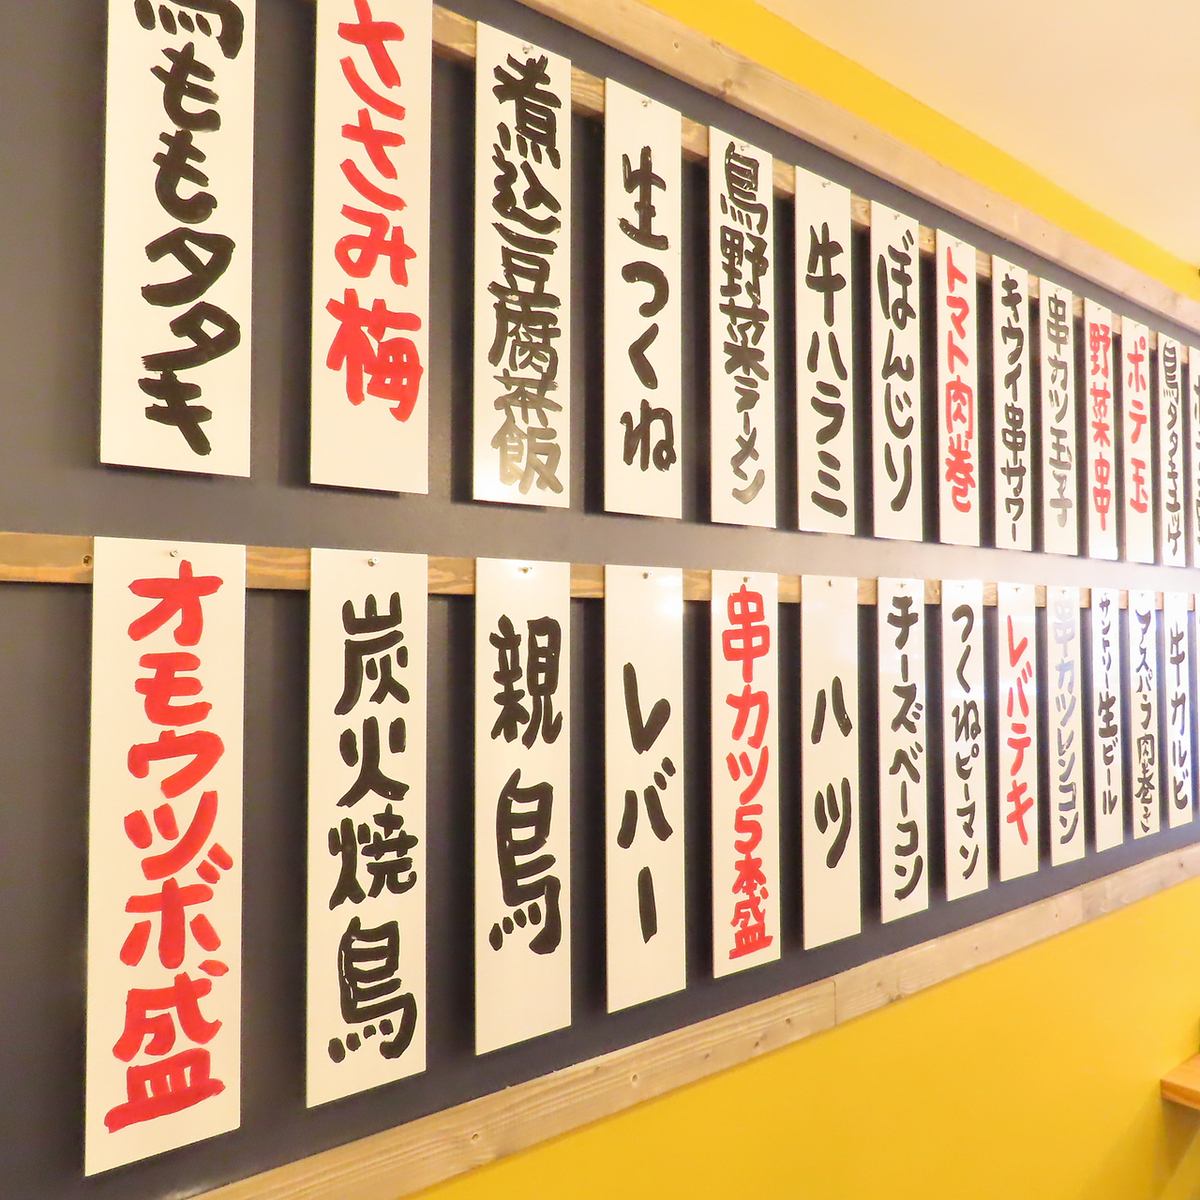 鳥ももタタキ
ささみ梅
煮込豆腐茶飯
生つくね
鳥野菜ラーメン
牛ハラミ
ぼんじり
トマト肉巻
キウイ串サワー
串カツ玉子
野菜串
ポテ玉
オモウツボ盛
炭火焼鳥
親鳥
レバー
串カツ5本盛
ハツ
チーズベーコン
つくねピーマン
レバテキ
串カツレンコン
サントリー生ビール
アスパラ肉巻き
牛カルビ